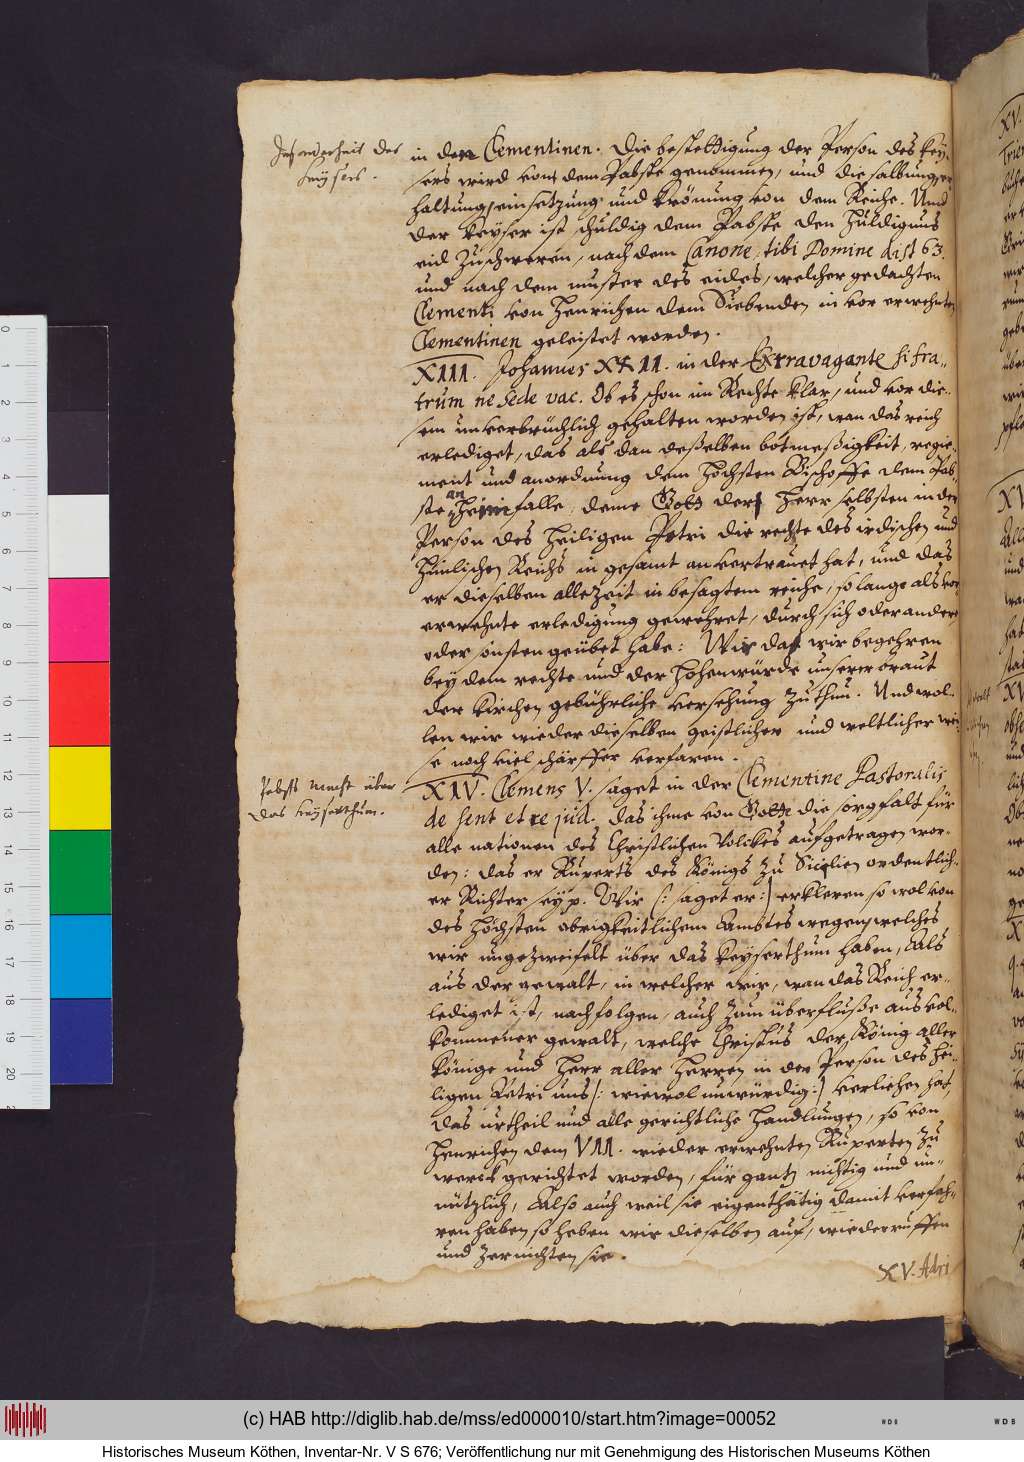 Insonderheit des
Keysers.
in den Clementinen. Die bestettigung der Person des Key-
sers wird von dem Pabste genommen, und die salbung, er-
haltung, einsetzung und Krönung von dem Reiche. Und
der Keyser ist schuldig dem Pabste den Huldigungs
eid zuschweren, nach dem Canone, tibi Domine dist 63.
und nach dem muster des eides, welcher gedachten
Clementi von Henrichen dem Siebenden in vor erwehnten
Clementinen geleistet worden.
XIII. Johannes XXII. in der Extravagante si fra-
trum ne sede vac. Ob es schon im Rechte klar, und vor die-
sem unverbrüchlich gehalten worden ist, wan das reich
erlediget, das als dan deßelben bötmeßigkeit, regie-
ment und anordnung dem Höchsten Bischoffe dem Pab-
ste an heimfalle, deme Gott der Herr selbsten in der
Person des Heiligen Petri die rechte des irdischen und
Himlischen Reichs in gesamt anvertrauet hat, und das
er dieselben allezeit in besagtem reiche, so lange als vor
erwehnte erledigung gewehret, durch sich oder andere
oder sonsten geübet habe: Wir das wir begehren
bey dem rechte und der Hohenwürde unserer braut
der Kirchen gebührliche versehung zuthun. Und wol-
len wir wieder dieselben geistlicher und weltlicher wei-
se noch viel schärffer verfaren.
Pabsts macht über
das Keyserthum.
XIV. Clemens V. saget in der Clementine Pastoralis
de sent et re jud. das ihme von Gotte die sorgfalt für
alle nationen des Christlichen Volckes aufgetragen wor-
den: das er Ruperts des Königs zu Sicilien ordentlich-
er Richter sey p. Wir (: saget er:) erkleren so wol von
des Höchsten obrigkeitlichem Ambtes wegen, welches
wir ungezweifelt über das Keyserthum haben, Als
aus der gewalt, in welcher wir, wan das Reich er-
lediget ist, nachfolgen, auch zum überfluße aus vol-
kommener gewalt, welche Christus der König aller
Könige und Herr aller Herren in der Person des hei-
ligen Petri uns (: wiewol unwürdig:) verliehen hat,
das urtheil und alle gerichtliche Handlungen, so von
Henrichen dem VII. wieder erwehnten Ruperten zu
werck gerichtet worden, für gantz nichtig und un-
nützlich, Also auch weil sie eigenthätig damit verfah-
ren haben so heben wir dieselben auf, wiederruffen
und zernichten sie.
XV. Adri
(c) HAB http://diglib.hab.de/mss/ed000010/start.htm?image=00052
Historisches Museum Köthen, Inventar-Nr. V S 676; Veröffentlichung nur mit Genehmigung des Historischen Museums Köthen